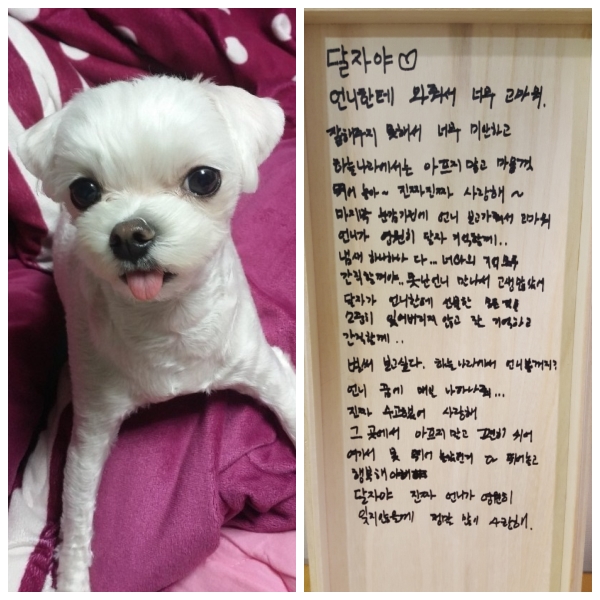 달자야 ♡
언니한테 와줘서 너무 고마워.
잘해주지 못해서 너무 미안하고
하늘나라에서는 아프지 말고 마음껏
뛰어 놀아~ 진짜진짜 사랑해~
마지막 눈감기전에 언니 보고가줘서 고마워
언니가 영원히 달자 기억할게..
냄새 하나하나 다.. 너와의 기억
간직할꺼야.. 못난언니 만나서 고생많았어
달자가 언니한테 선물한 모든 것을
소중히 잊어버리지 않고 잘 기억하고
간직할께..
벌써 보고싶다. 하늘나라에서 언니볼꺼지?
언니 꿈에 매일 나타나줘...
진짜 수고했어 사랑해
그 곳에서 아프지 말고 편히 쉬어
여기서 못 뛰어 논만큼 더 뛰어놀고
행복해야해
달자야 진짜 언니가 영원히
잊지않을게 정말 많이 사랑해.